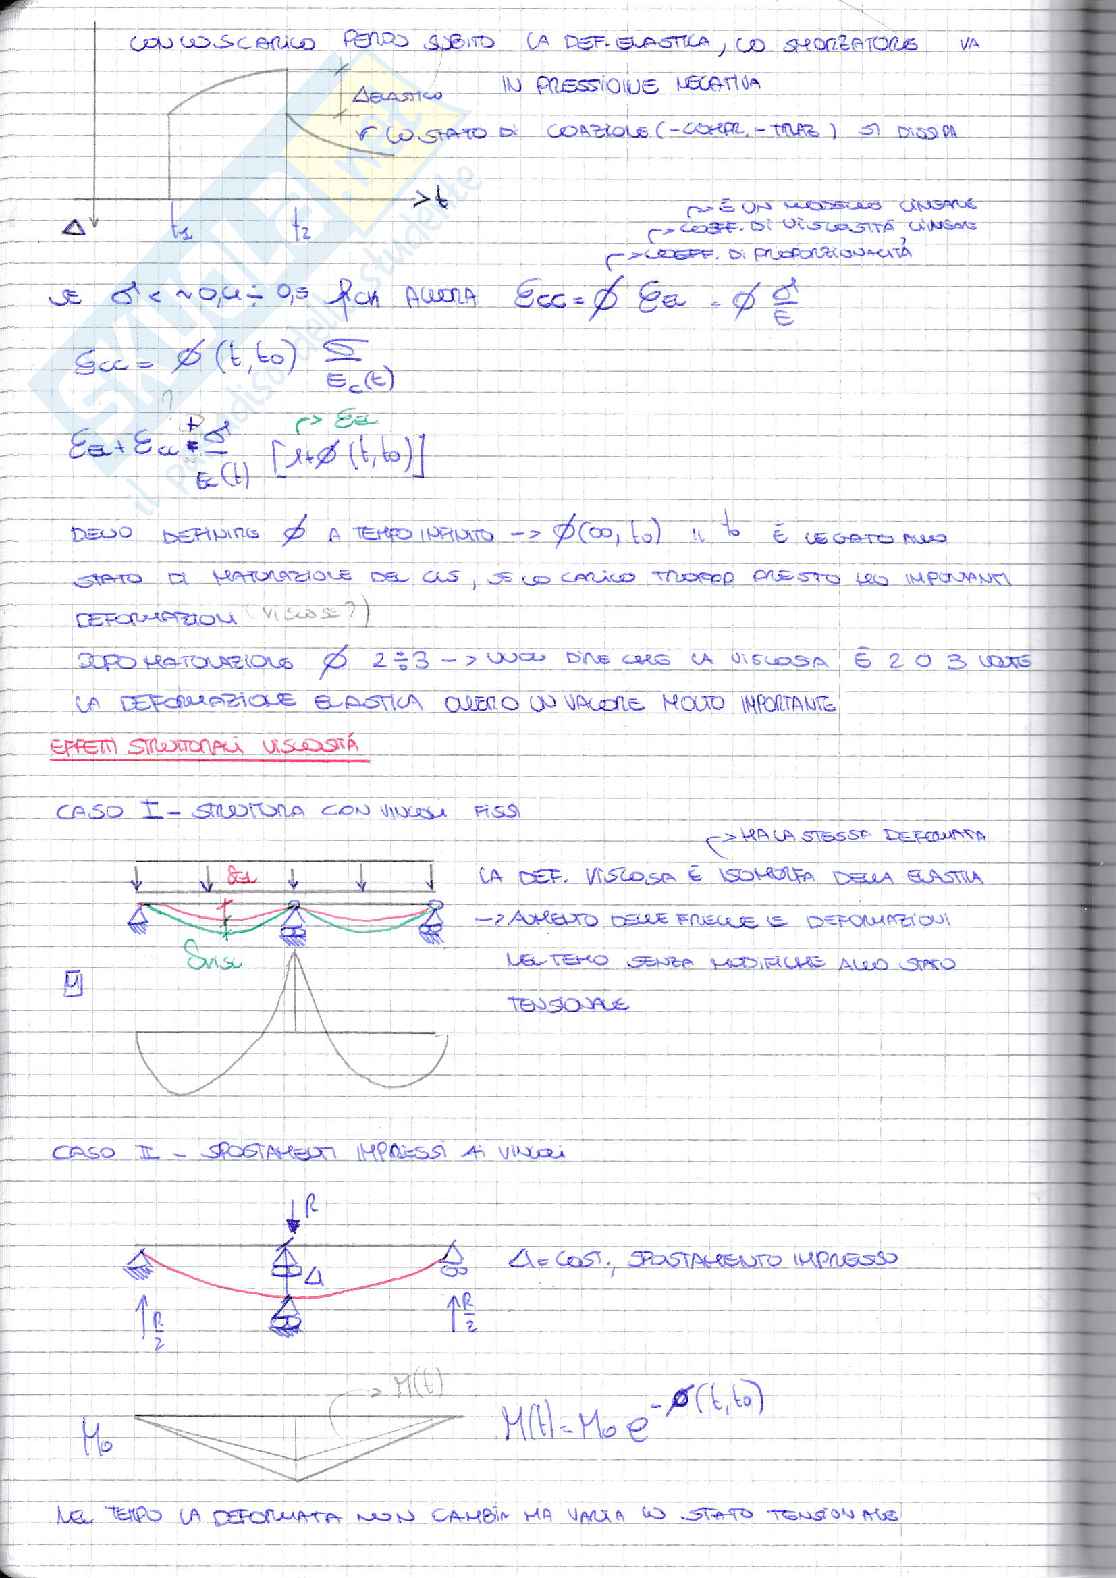 CON LO SCARICO PERDO SUBITO LA DEF. ELASTICA, LO SMORZATORE VA
IN PRESSIONE NEGATIVA
Δ ELASTICO
LO STATO DI COAZIONE (-COMPR. -TRAZ) SI DISSIPA
t
Δ
t1
t2
È UN MODELLO LINEARE
COEFF. DI VISCOSITÁ LINEARE
COEFF. DI PROPORZIONALITÁ
SE σ < ~0,4 ÷ 0,5 fck ALLORA Ecc = φ Eel = φ σ/E
Ecc = φ (t,t0) σ/Ec(t)
?
→ Eel
Eel + Ecc = σ/E(t) [1+φ(t,t0)]
DEVO DEFINIRE φ A TEMPO INFINITO -> φ(∞,t0) IL t0 È LEGATO ALLO
STATO DI MATURAZIONE DEL CLS, SE LO CARICO TROPPO PRESTO HO IMPONENTI
DEFORMAZIONI (VISCOSE?)
DOPO MATURAZIONE φ 2÷3 -> VUOL DIRE CHE LA VISCOSA È 2 O 3 VOLTE
LA DEFORMAZIONE ELASTICA OVVERO UN VALORE MOLTO IMPORTANTE
EFFETTI STRUTTURALI VISCOSITÁ
CASO I - STRUTTURA CON VINCOLI FISSI
-> HA LA STESSA DEFORMATA
δel
LA DEF. VISCOSA È ISOMORFA DELLA ELASTICA
-> AUMENTO DELLE FRECCE E DEFORMAZIONI
δvisc
NEL TEMPO SENZA MODIFICHE ALLO STATO
M
TENSIONALE
CASO II - SPOSTAMENTI IMPRESSI AI VINCOLI
R
Δ
Δ = COST., SPOSTAMENTO IMPRESSO
R/2
R/2
-> M(t)
M0
M(t) = M0 e^-φ(t,t0)
NEL TEMPO LA DEFORMATA NON CAMBIA MA VARIA LO STATO TENSIONALE
SKUOLA.net
il paradiso dello studente